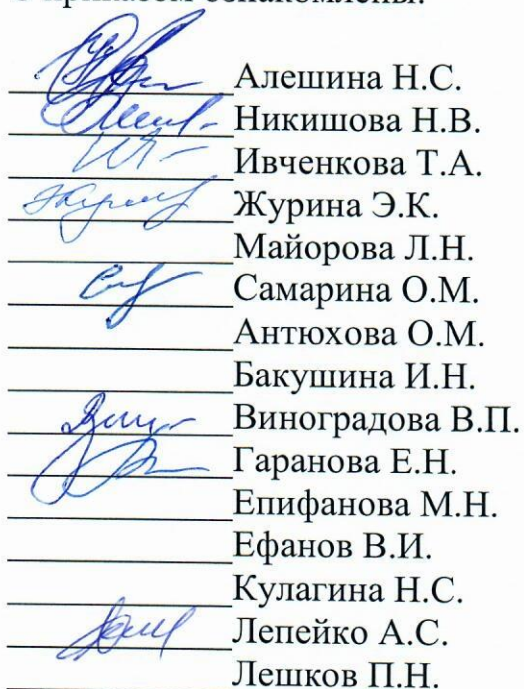 Алешина Н.С.
Никишова Н.В.
Ивченкова Т.А.
Журина Э.К.
Майорова Л.Н.
Самарина О.М.
Антюхова О.М.
Бакушина И.Н.
Виноградова В.П.
Гаранова Е.Н.
Епифанова М.Н.
Ефанов В.И.
Кулагина Н.С.
Лепейко А.С.
Лешков П.Н.